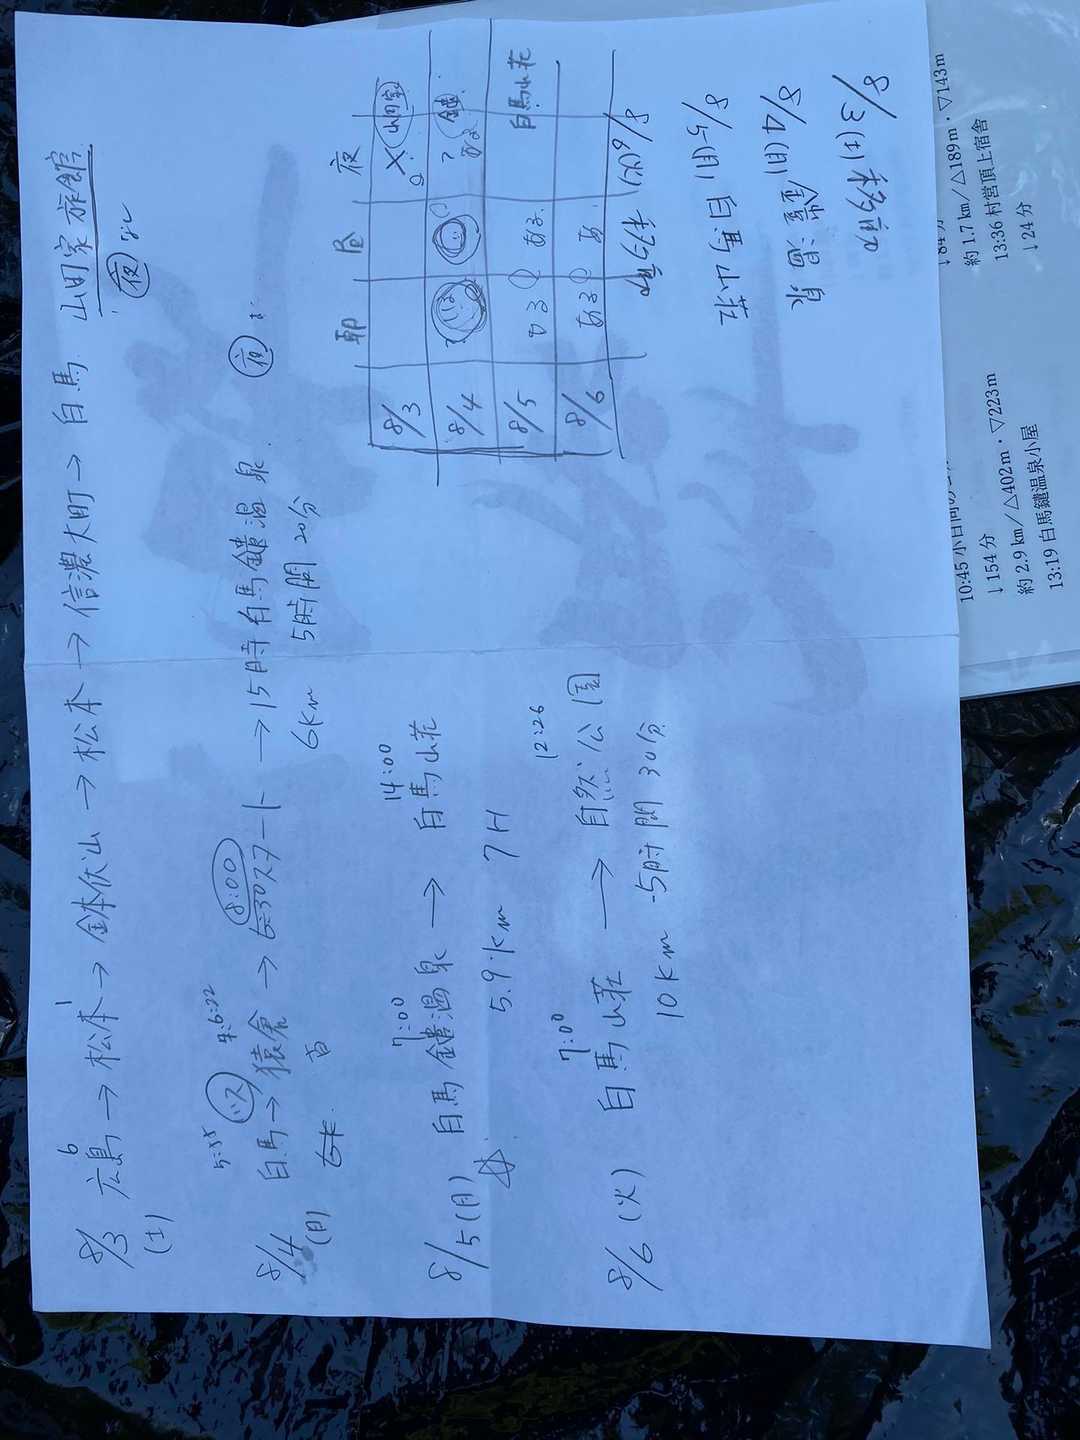 8/3 広島→松本→鉢伏山→松本→信濃大町→白馬 山田家旅館
(土)
6
1
夜
5:55 バス 4:6:22 8:00
8/4 白馬→猿倉→6:30スタート→15時白馬鑓温泉 夜
(月)
6km 5時間20分
7:00 14:00
8/5(月) 白馬鑓温泉→白馬山荘
5.9km 7H
7:00 12:26
8/6(火) 白馬山荘→自然公園
10km 5時間30分
朝 昼 夜
8/3 × 山田家
8/4 ? ある 鑓
8/5 ある ある 白馬山荘
8/6 ある あ
8/3(土)
8/4(月)
8/5(月) 白馬山荘
8/6(火)
↓84分
約1.7 km/△189m・▽143m
13:36 村営頂上宿舎
↓24分
↓154分
約2.9 km/△402m・▽223m
13:19 白馬鑓温泉小屋